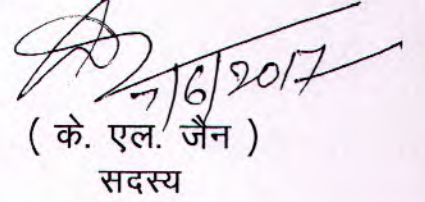 7/6/2017
( के. एल. जैन )
सदस्य